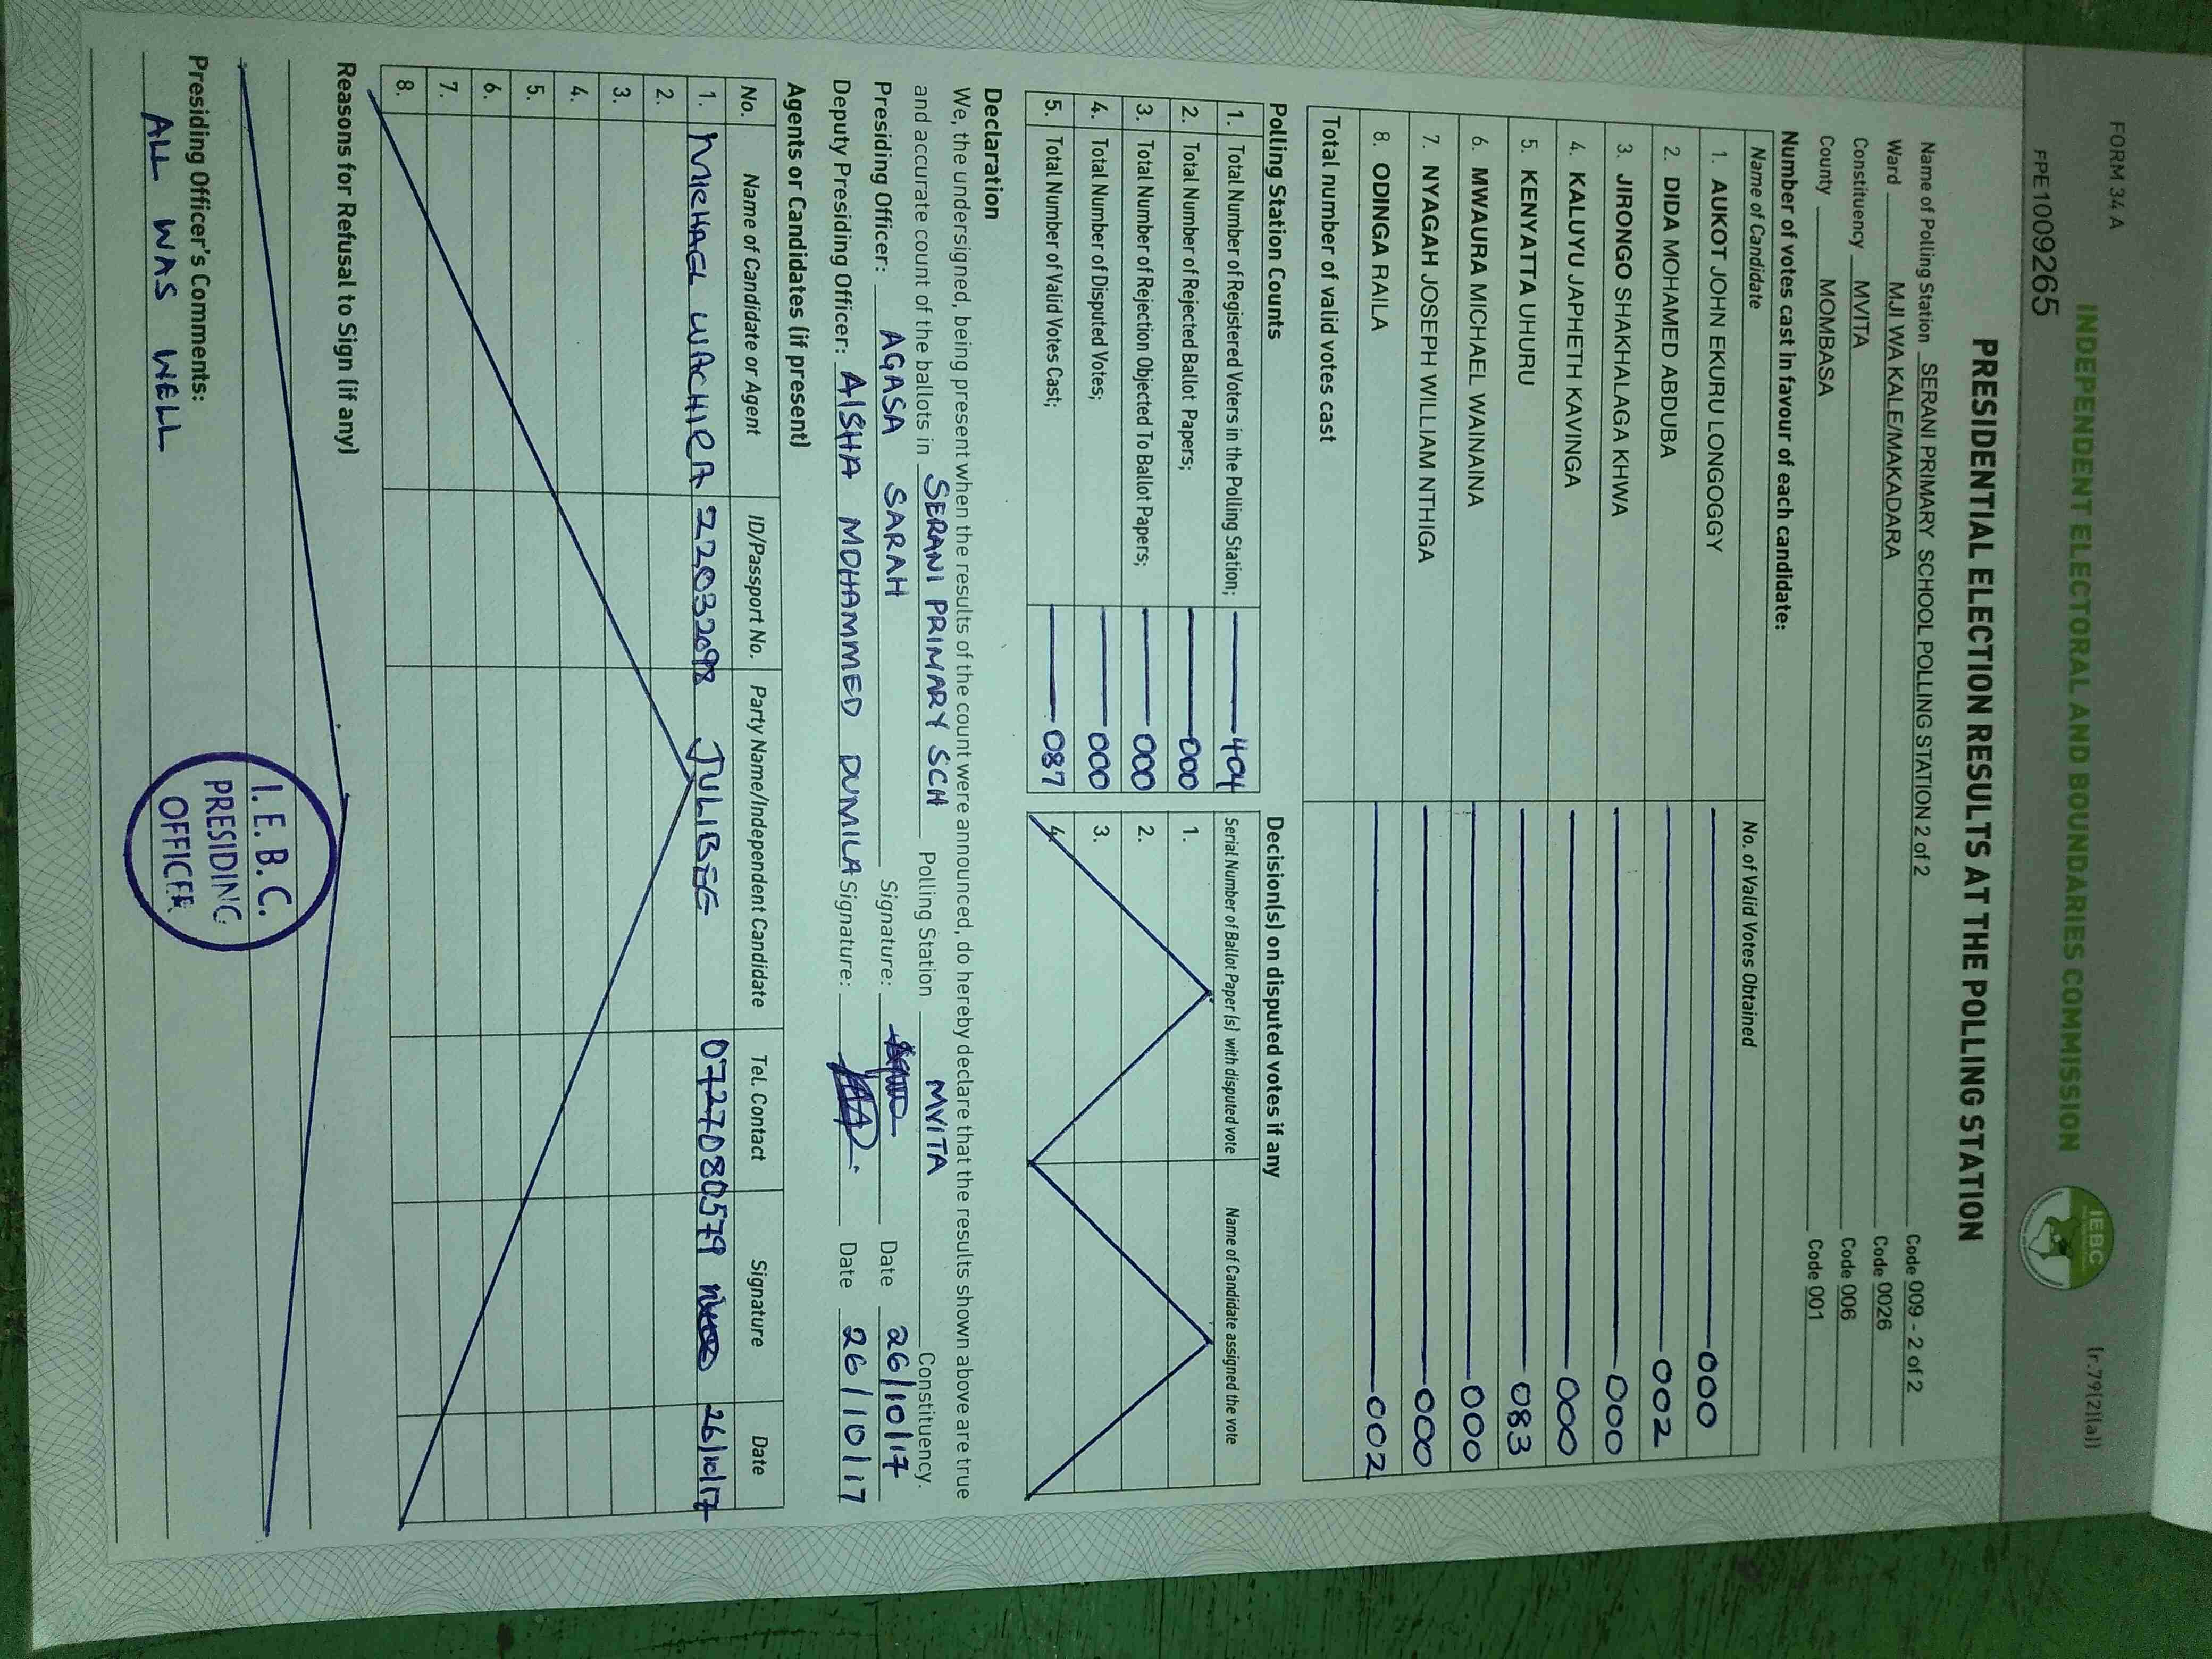 FORM 34 A
(r.79(2)(a))
INDEPENDENT ELECTORAL AND BOUNDARIES COMMISSION
IEBC
FPE1009265
PRESIDENTIAL ELECTION RESULTS AT THE POLLING STATION
Name of Polling Station SERANI PRIMARY SCHOOL POLLING STATION 2 of 2 Code 009 - 2 of 2
Ward MJI WA KALE/MAKADARA Code 0026
Constituency MVITA Code 006
County MOMBASA Code 001
Number of votes cast in favour of each candidate:
Name of Candidate No. of Valid Votes Obtained
1. AUKOT JOHN EKURU LONGOGGY 000
2. DIDA MOHAMED ABDUBA 002
3. JIRONGO SHAKHALAGA KHWA 000
4. KALUYU JAPHETH KAVINGA 000
5. KENYATTA UHURU 083
6. MWAURA MICHAEL WAINAINA 000
7. NYAGAH JOSEPH WILLIAM NTHIGA 000
8. ODINGA RAILA 002
Total number of valid votes cast
Polling Station Counts
1. Total Number of Registered Voters in the Polling Station; 404
2. Total Number of Rejected Ballot Papers; 000
3. Total Number of Rejection Objected To Ballot Papers; 000
4. Total Number of Disputed Votes; 000
5. Total Number of Valid Votes Cast; 087
Decision(s) on disputed votes if any
Serial Number of Ballot Paper (s) with disputed vote Name of Candidate assigned the vote
1.
2.
3.
4.
Declaration
We, the undersigned, being present when the results of the count were announced, do hereby declare that the results shown above are true
and accurate count of the ballots in SERANI PRIMARY SCH Polling Station MVITA Constituency.
Presiding Officer: AGASA SARAH Signature: Date 26/10/17
Deputy Presiding Officer: AISHA MOHAMMED DUMILA Signature: Date 26/10/17
Agents or Candidates (if present)
No. Name of Candidate or Agent ID/Passport No. Party Name/Independent Candidate Tel. Contact Signature Date
1. MICHAEL WACHIRA JULIBEE 0727080579 26/10/17
2.
3.
4.
5.
6.
7.
8.
Reasons for Refusal to Sign (if any)
Presiding Officer's Comments:
ALL WAS WELL
I.E.B.C.
PRESIDING
OFFICER